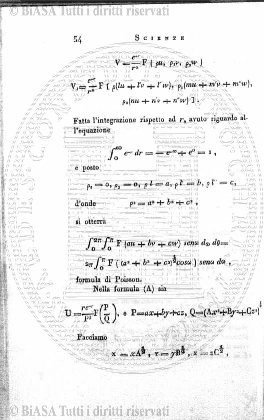 © BIASA Tutti i diritti riservati
54 SCIENZE
V = F ( ρu, ρ₁v, ρ₂w )
V₁ = F [ ρ(lu + l'v + l''w), ρ₁(mu + m'v + m''w),
ρ₂(nu + n'v + n''w) ] .
Fatta l'integrazione rispetto ad r, avuto riguardo al-
l'equazione
∫₀^∞ e⁻ʳ dr = — e^{-∞} + e⁰ = 1 ,
e posto
ρ₁ = 0, ρ₂ = 0, ρ l = a, ρ l' = b, ρ l'' = c,
d'onde ρ² = a² + b² + c² ,
si otterrà
F (au + bv + cw) senu du dθ =
2π ∫₀^π F { (a² + b² + c²)^½ cosu } senu du ,
formula di Poisson.
Nella formula (A) sia
U = F(P/Q) , e P=ax+by+cz, Q=(Ax²+By²+Cz²)
Facciamo
x = xA^½ , y = yB^½ , z = zC^½ ,
© BIASA Tutti i diritti riservati